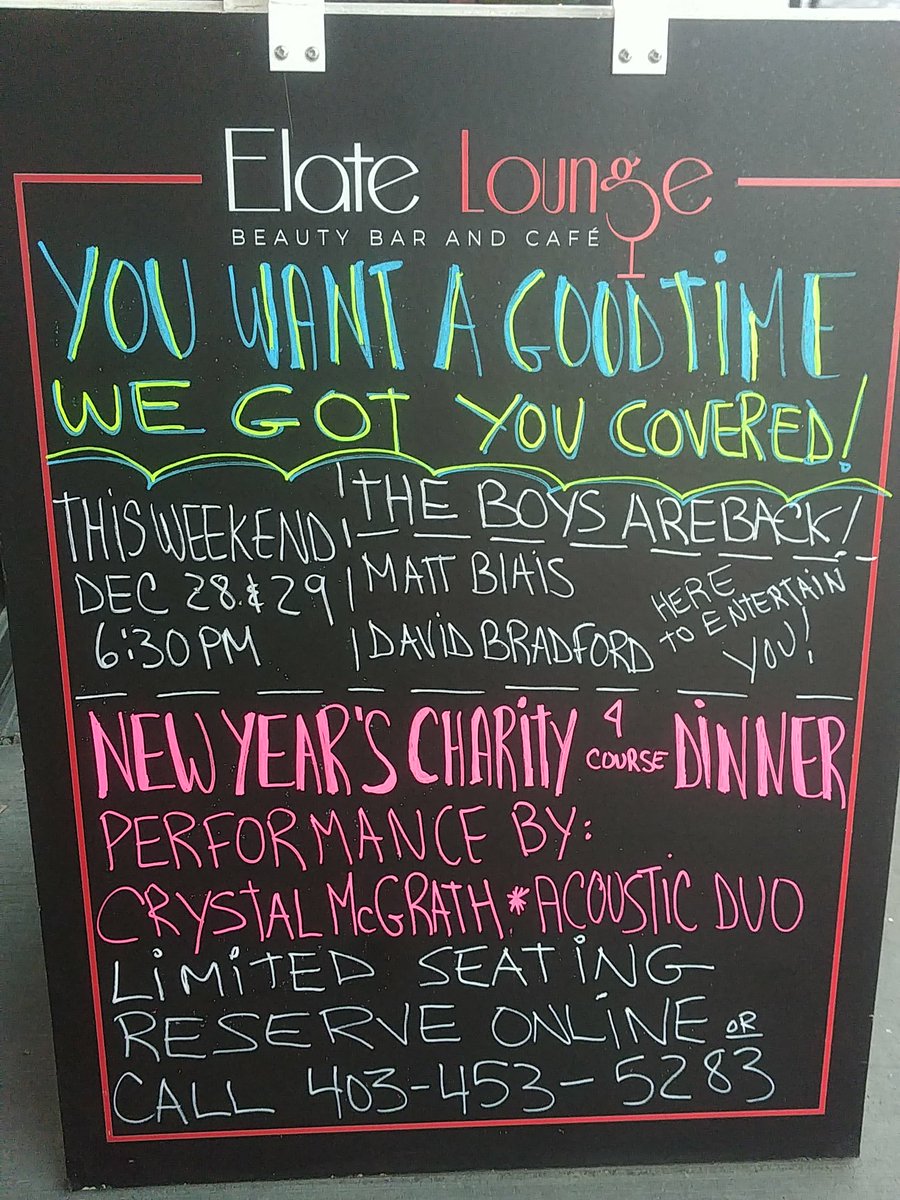 Elate Lounge
BEAUTY BAR AND CAFÉ
YOU WANT A GOOD TIME
WE GOT YOU COVERED!
THIS WEEKEND
DEC 28 & 29
6:30 PM
THE BOYS ARE BACK!
MATT BIAIS
DAVID BRADFORD
HERE
TO ENTERTAIN
YOU!
NEW YEAR'S CHARITY 4 COURSE DINNER
PERFORMANCE BY:
CRYSTAL McGRATH * ACOUSTIC DUO
LIMITED SEATING
RESERVE ONLINE OR
CALL 403-453-5283